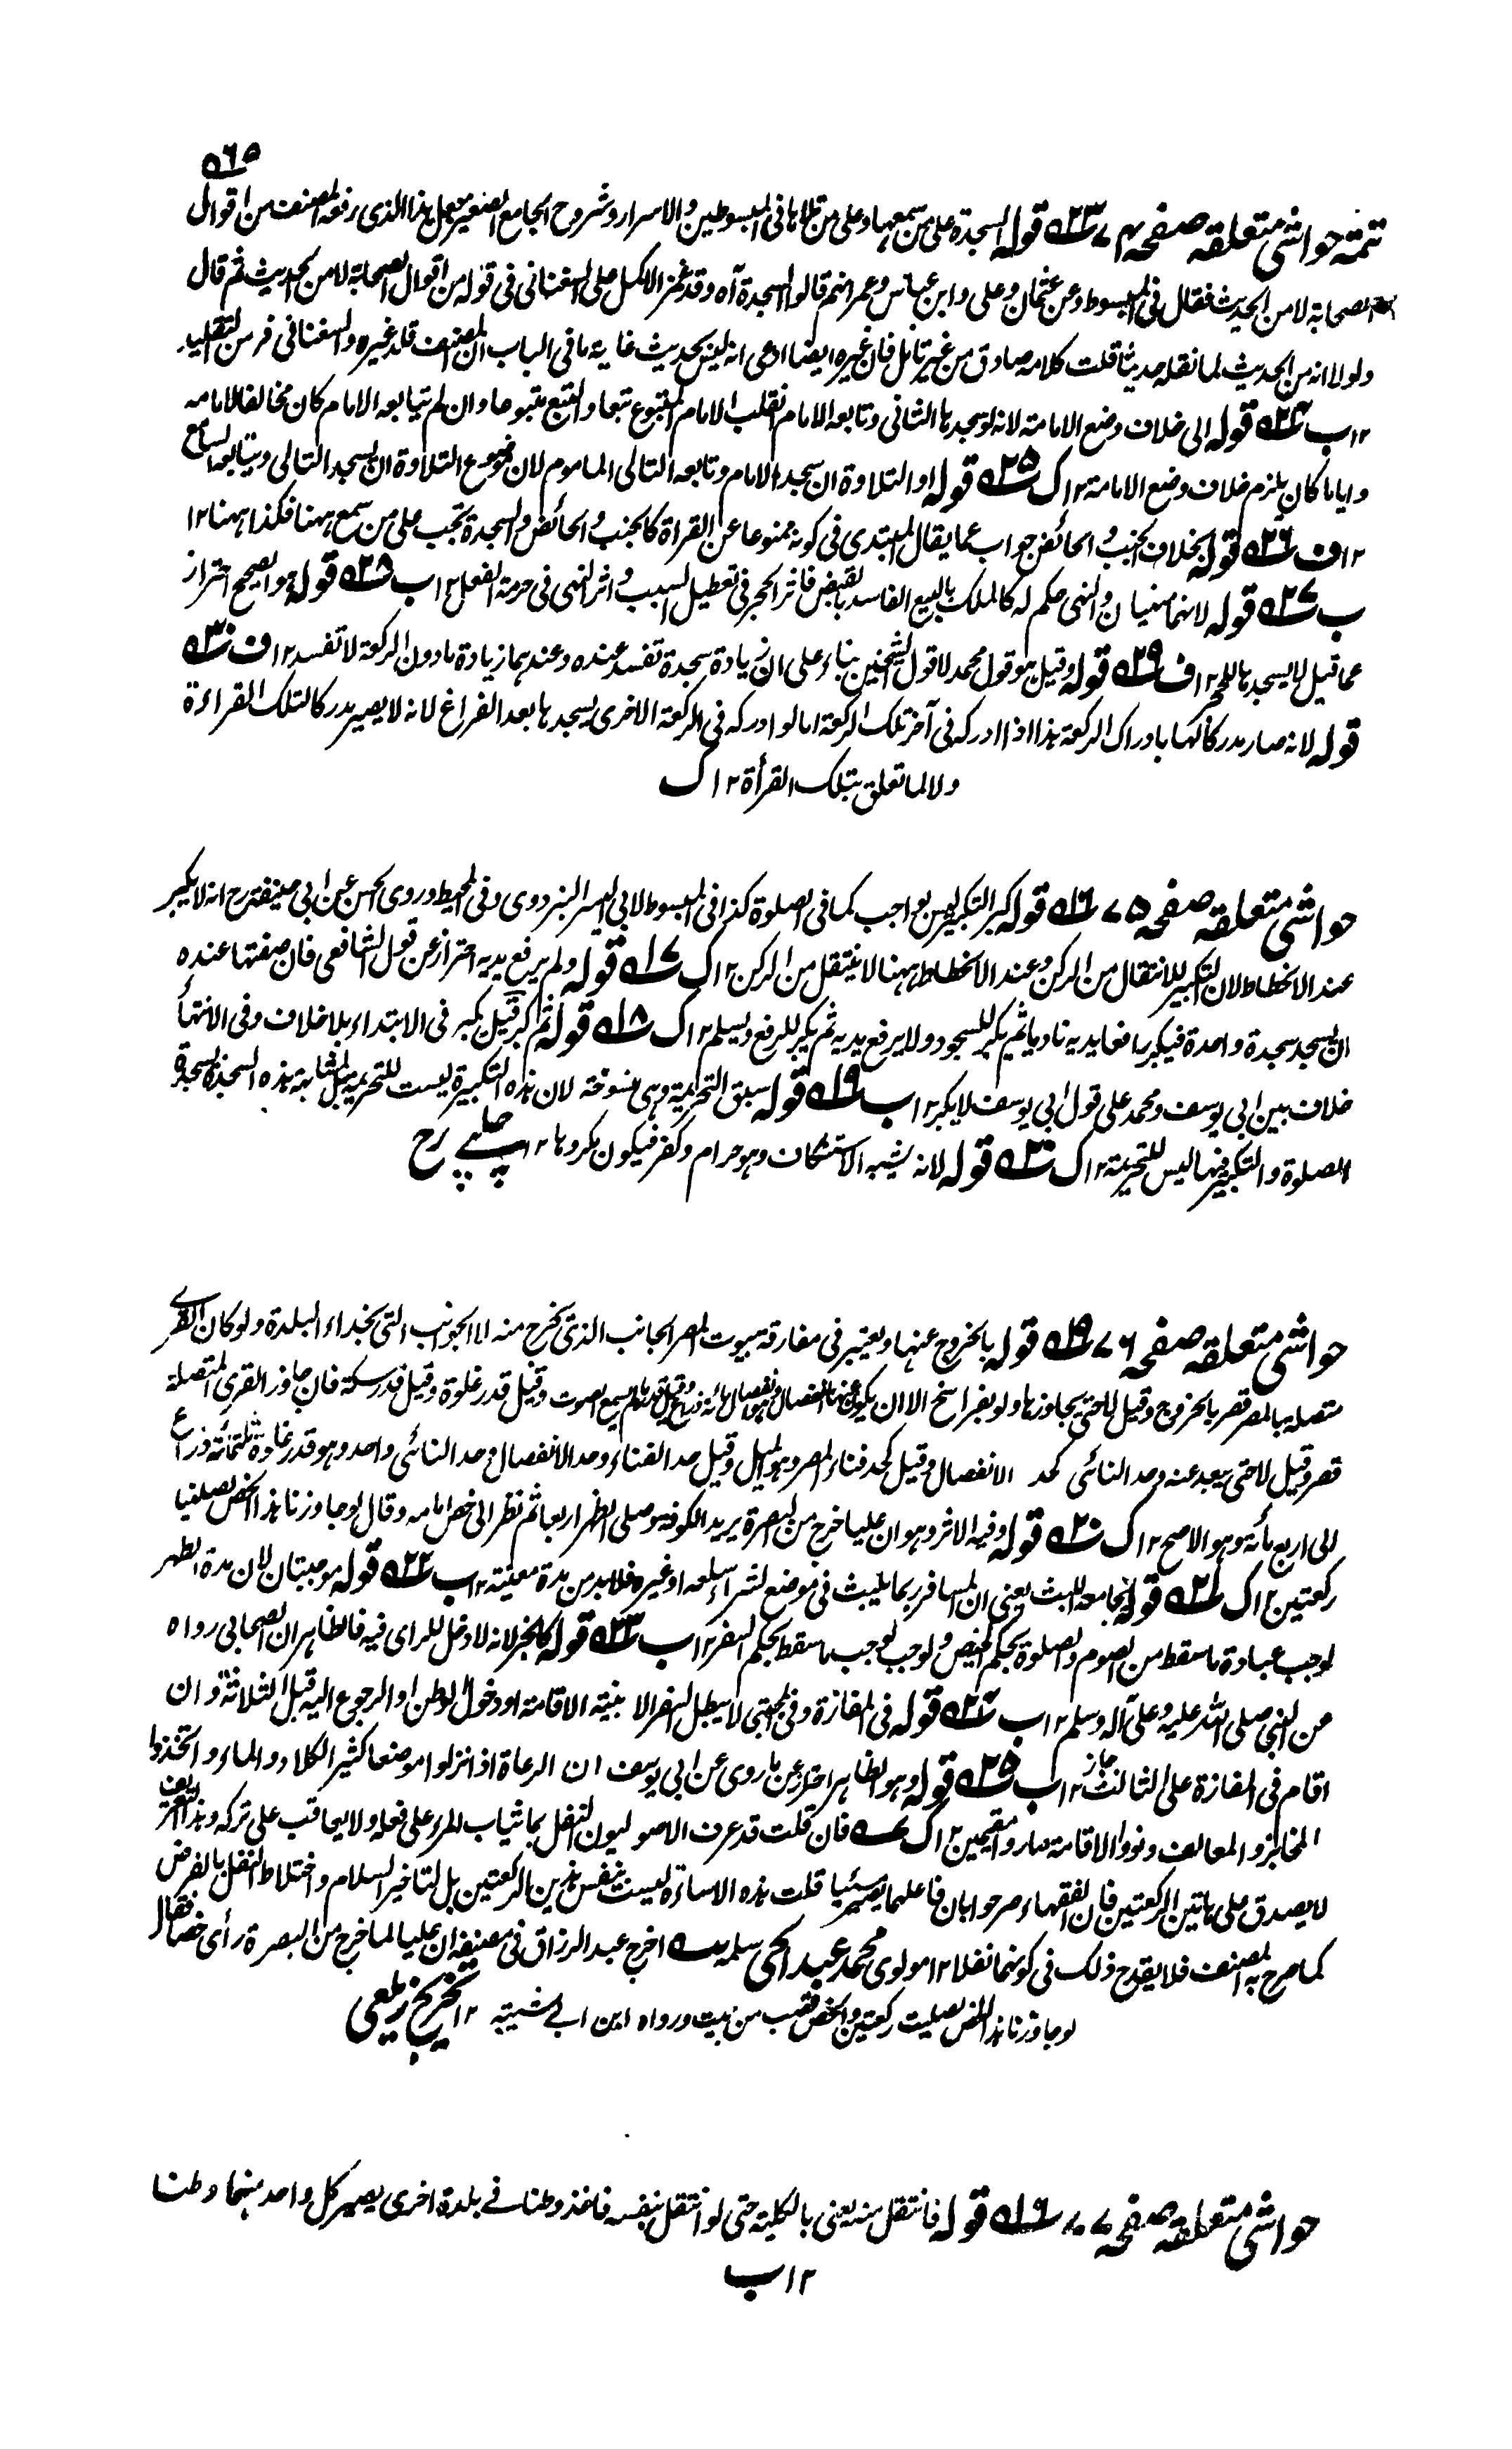 ٥٦٥
تتمة حواشی متعلقه صفحه ٧٤ ٥٢٣ قوله السجدة على من سمعها وعلى من تلاها فى المبسوطين والاسرار وشروح الجامع الصغير جعل هذا الذى رفعه المصنف من اقوال
الصحابة لا من الحديث فقال فى المبسوط وعن عثمان وعلى وابن عباس وعمر انهم قالوا السجدة آه وقد غمز الاكمل على السغناقى فى قوله من اقوال الصحابة لا من الحديث ثم قال
ولولا انه من الحديث لما نقله حديثا قلت كلامه صادق من غير تامل فان غيره ايضا ادعى انه ليس بحديث غاية ما فى الباب ان المصنف قلد غيره والسغناقى فر من التقليد
١٢ ب ٥٢٤ قوله الى خلاف وضع الامامة لانه لو سجدها الثانى وتابعه الامام انقلب الامام المتبوع تبعا والتبع متبوعا وان لم يتابعه الامام كان مخالفا لامامه
واياما كان يلزم خلاف وضع الامامة ١٢ ك ٥٢٥ قوله او التلاوة ان سجد الامام وتابعه التالى الماموم لان موضوع التلاوة ان يسجد التالى ويتابعه السامع
١٢ ف ٥٢٦ قوله بخلاف الجنب والحائض جواب عما يقال المقتدى فى كونه ممنوعا عن القراة كالجنب والحائض والسجدة تجب على من سمع منهما فكذا ههنا ١٢
ب ٥٢٧ قوله لانهما منهيان والنهى حكم له كالملك بالبيع الفاسد بالقبض فاثر الحجر فى تعطيل السبب واثر النهى فى حرمة الفعل ١٢ ب ٥٢٨ قوله هو الصحيح احتراز
عما قيل لا يسجدها الخ ١٢ ف ٥٢٩ قوله وقيل هو قول محمد لا قول الشيخين بناء على ان زيادة سجدة تفسد عنده وعندهما زيادة ما دون الركعة لا تفسد ١٢ ف ٥٣٠
قوله لانه صار مدركا لها بادراك الركعة هذا اذا ادركه فى آخر تلك الركعة اما لو ادركه فى الركعة الاخرى يسجدها بعد الفراغ لانه لا يصير مدركا لتلك القراءة
ولا لما تعلق بتلك القرأة ١٢ ك
حواشی متعلقه صفحه ٧٥ ٥١٦ قوله كبر التكبير ليس بواجب كما فى الصلوة كذا فى المبسوط لابى اليسر البزدوى وفى المحيط وروى الحسن عن ابى حنيفة رح انه لا يكبر
عند الانحطاط لان التكبير للانتقال من الركن وعند الانحطاط ههنا لا ينتقل من الركن ١٢ ك ٥١٧ قوله ولم يرفع يديه احتراز عن قول الشافعى فان صفتها عنده
ان يسجد سجدة واحدة فيكبر رافعا يديه ناويا ثم يكبر للسجود ولا يرفع يديه ثم يكبر للرفع ويسلم ١٢ ك ٥١٨ قوله ثم كبر قيل يكبر فى الابتداء بلا خلاف وفى الانتهأ
خلاف بين ابى يوسف ومحمد على قول ابى يوسف لا يكبر ١٢ ب ٥١٩ قوله سبق التحريمة وهى منسوخة لان هذه التكبيرة ليست للتحريمة بل لمشابهة هذه السجدة بسجدة
الصلوة والتكبير فيها ليس للتحريمة ١٢ ك ٥٢٠ قوله لانه يشبه الاستنكاف وهو حرام وكفر فيكون مكروها ١٢ چلپی رح
حواشی متعلقه صفحه ٧٦ ٥١٩ قوله بالخروج عنها ويعتبر فى مفارقة بيوت المصر الجانب الذى يخرج منه لا الجوانب التى بحذاء البلدة ولو كان القرى
متصلة بالمصر قصر بالخروج وقيل لا حتى يجاوزها ولو بفراسخ الا ان يكون بينهما انفصال وهو انفصال مائة ذراع وقيل قدر ما لم يسمع الصوت وقيل قدر غلوة وقيل قدر سكة فان جاوز القرى المتصلة
قصر وقيل لا حتى يبعد عنه وحد النائى كحد الانفصال وقيل كحد فناء المصر وهو الميل وقيل حد الفناء وحد الانفصال وحد النائى واحد وهو قدر غلوة ثلثمائة ذراع
الى اربع مأئة وهو الاصح ١٢ ك ٥٢٠ قوله وفيه الاثر وهو ان عليا خرج من البصرة يريد الكوفة وصلى الظهر اربعا ثم نظر الى خص امامه وقال لو جاوزنا هذا الخص لصلينا
ركعتين ١٢ ك ٥٢١ قوله يجامعه اللبث يعنى ان المسافر ربما يلبث فى موضع لشراء سلعه او غيره فلا بد من مدة معينة ١٢ ب ٥٢٢ قوله موجبتان لان مدة الطهر
توجب عبادة ما سقط من الصوم والصلوة بحكم الحيض والوجب توجب ما سقط بحكم السفر ١٢ ب ٥٢٣ قوله كالخبر لانه لا دخل للراى فيه فالظاهر ان الصحابى رواه
من النبى صلى الله عليه وعلى آله وسلم ١٢ ب ٥٢٤ قوله فى المفازة وفى المجتبى لا يبطل السفر الا بنية الاقامة او دخول الوطن او الرجوع اليه قبل الثلاثة وان
اقام فى المفازة على الثالث جاز ١٢ ب ٥٢٥ قوله وهو الظاهر احتراز عن ما روى عن ابى يوسف ان الرعاة اذا نزلوا موضعا كثير الكلاء والماء واتخذوا
المخابز والمعالف ونووا الاقامة صاروا مقيمين ١٢ ك فان قلت قد عرف الاصوليون النفل بما يثاب المرء على فعله ولا يعاقب على تركه وهذا التعريف
لا يصدق على هاتين الركعتين فان الفقهاء صرحوا بان فاعلهما يصير مسيئا قلت هذه الاساءة ليست بنفس هذين الركعتين بل لتاخير السلام واختلاط النفل بالفرض
كما صرح به المصنف فلا يقدح ذلك فى كونهما نفلا ١٢ مولوى محمد عبد الحى سلمه اخرج عبد الرزاق فى مصنفه ان عليا لما خرج من البصرة رأى خصا فقال
لو جاوزنا هذا الخص لصليت ركعتين والخص قصب من بيت ورواه ابن ابى شيبة ١٢ تخريج زيلعى
حواشی متعلقه صفحه ٧٧ ٥١٦ قوله فانتقل منه يعنى بالكلية حتى لو انتقل بنفسه فاخذ وطنا فى بلدة اخرى يصير كل واحد منهما وطنا
١٢ ب